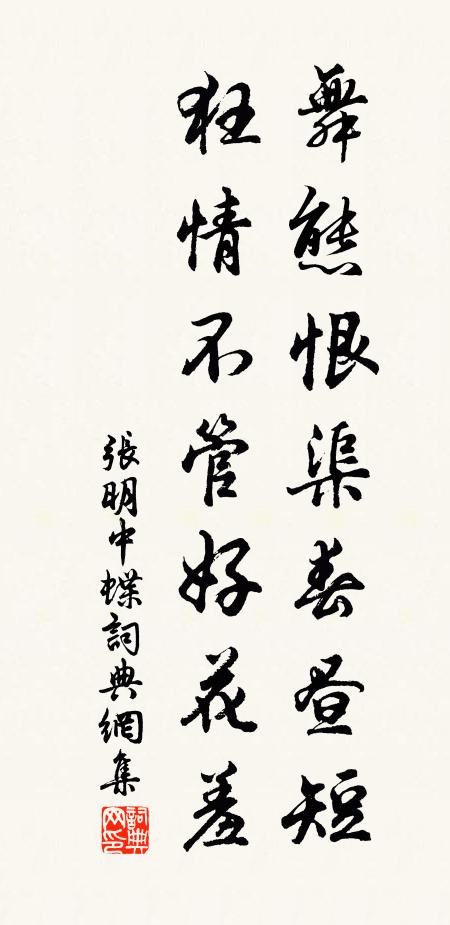 舞態恨渠春昼短
狂情不管好花羞
張明中蝶詞典網集
詞典网印